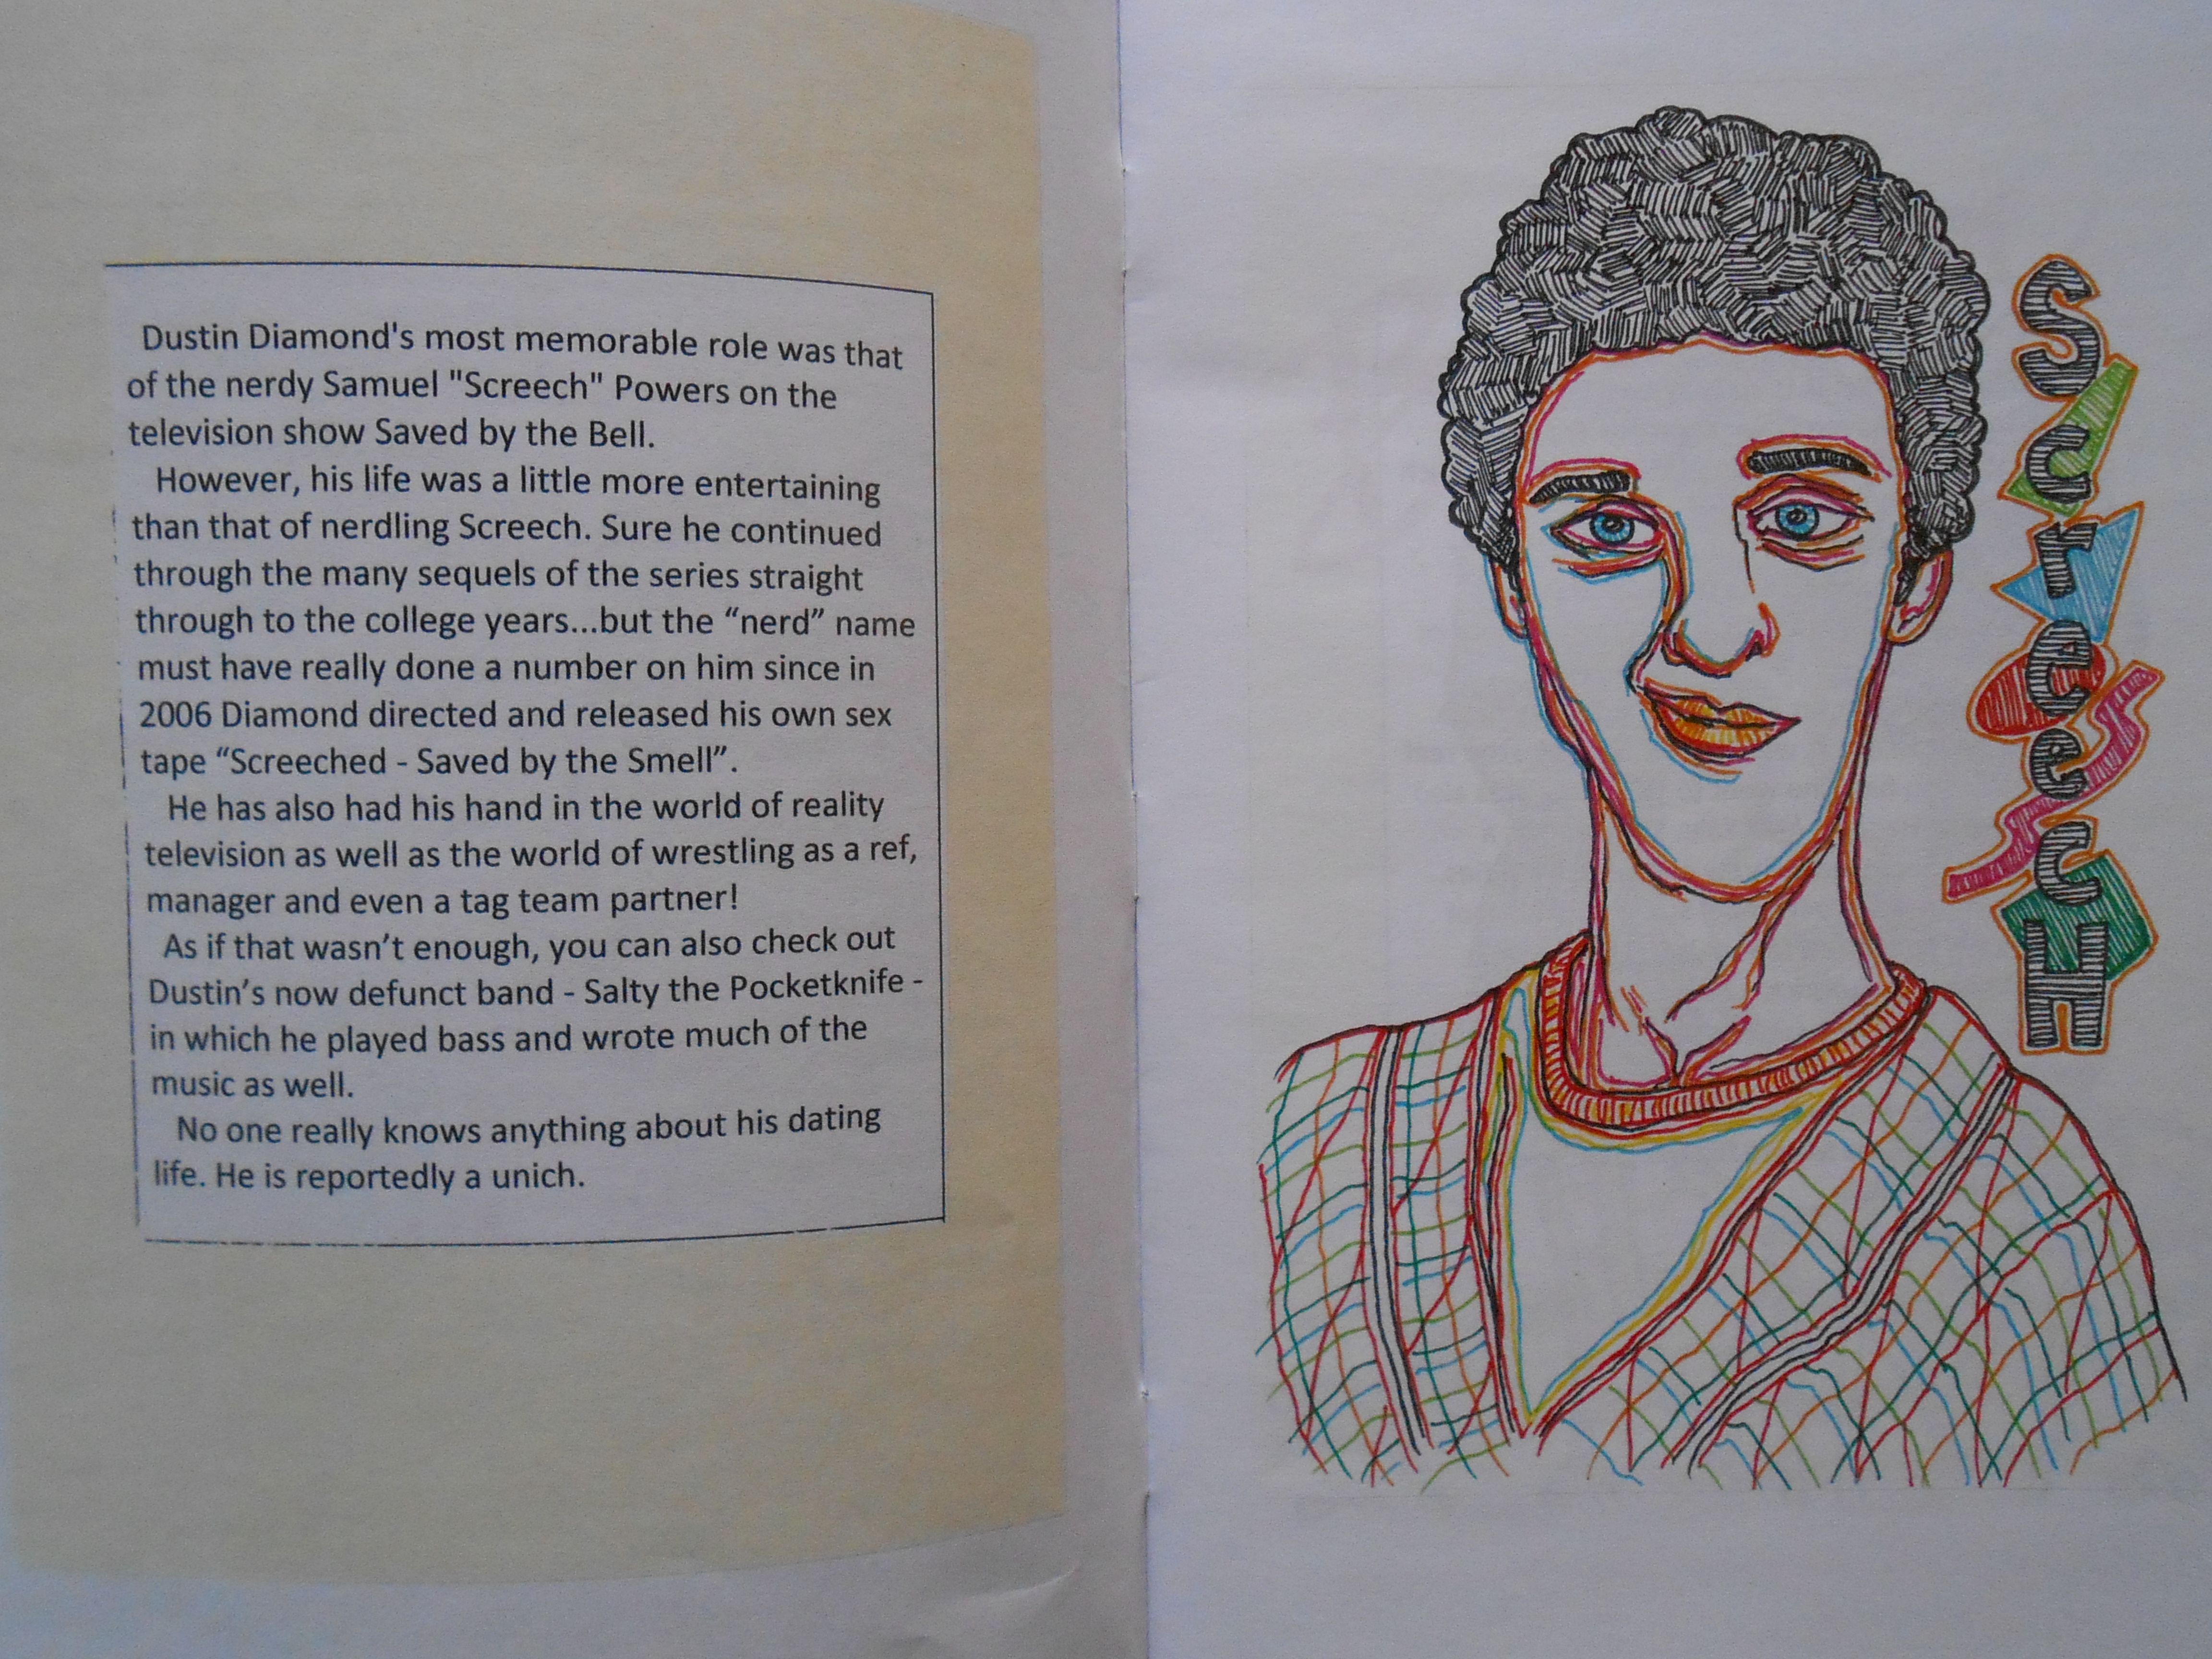 Dustin Diamond's most memorable role was that
of the nerdy Samuel "Screech" Powers on the
television show Saved by the Bell.
However, his life was a little more entertaining
than that of nerdling Screech. Sure he continued
through the many sequels of the series straight
through to the college years...but the “nerd” name
must have really done a number on him since in
2006 Diamond directed and released his own sex
tape “Screeched - Saved by the Smell”.
He has also had his hand in the world of reality
television as well as the world of wrestling as a ref,
manager and even a tag team partner!
As if that wasn’t enough, you can also check out
Dustin’s now defunct band - Salty the Pocketknife -
in which he played bass and wrote much of the
music as well.
No one really knows anything about his dating
life. He is reportedly a unich.
ScreecH